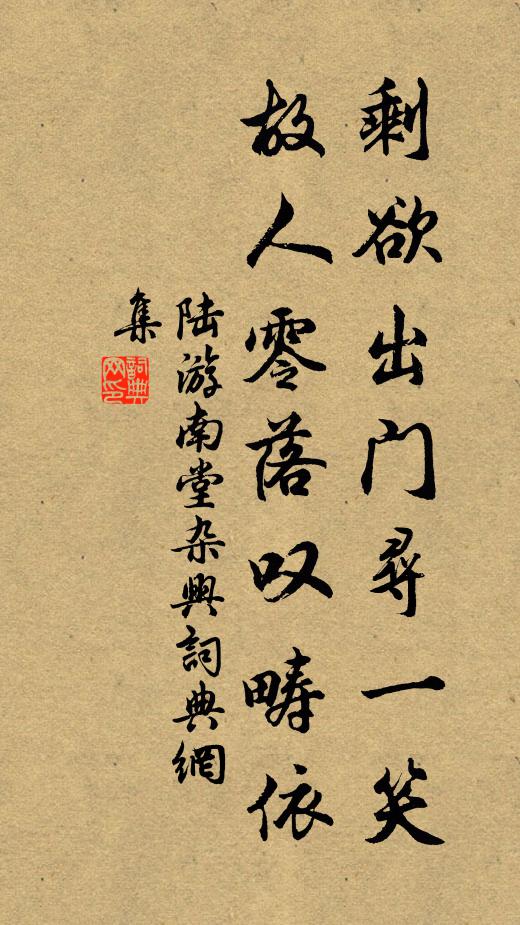 剩欲出门尋一笑
故人零落叹畴依
陆游南堂杂興詞典網
集
詞典网印